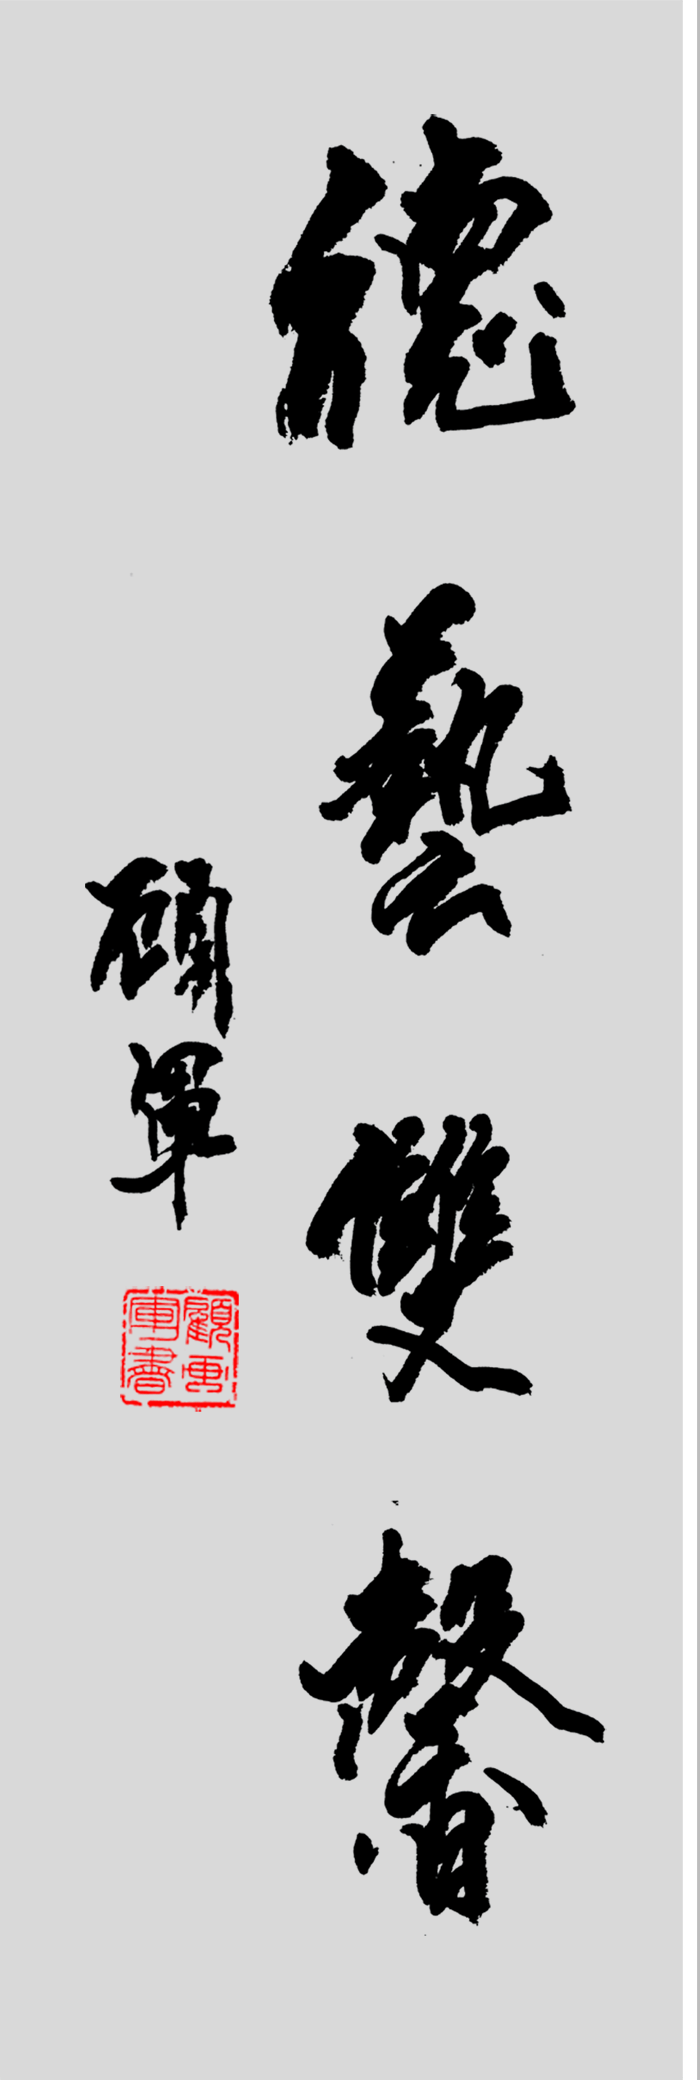 德藝雙馨
顧軍
顧軍畫書